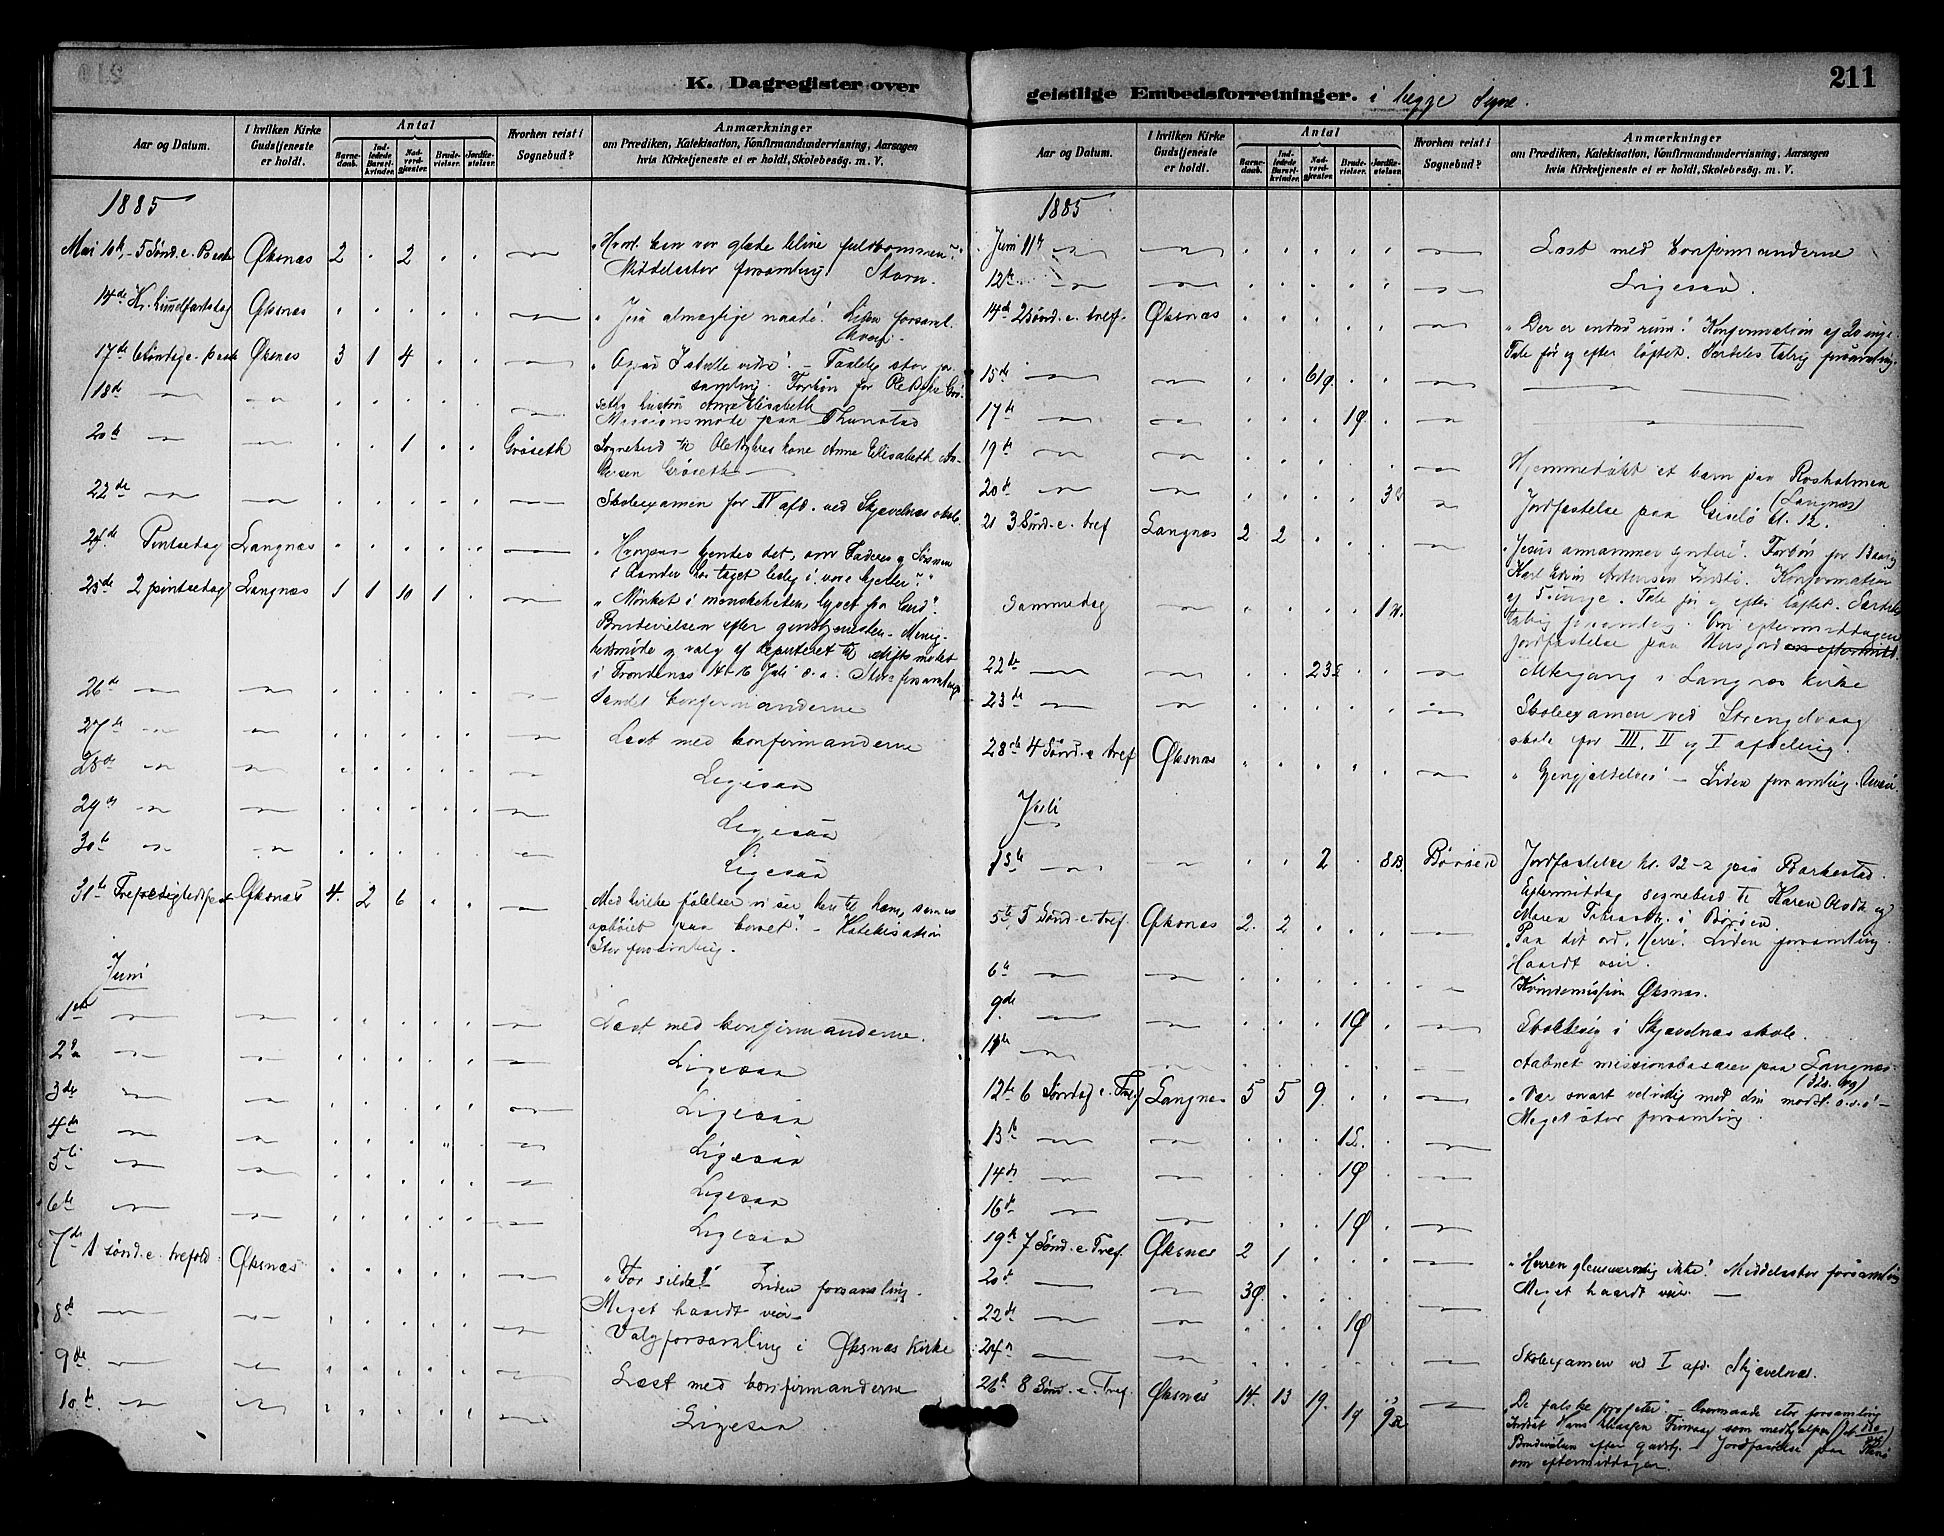 K. Dagregister over
Aar og Datum.
I hvilken Kirke Gudstjeneste er holdt.
Antal
Barnedaab.
Indledede Barselkvinder.
Nadverdgjæster.
Brudevielser.
Jordfæstelser.
Hvorhen reist i Sognebud?
Anmærkninger
om Prædiken, Katekisation, Konfirmandundervisning, Aarsagen
hvis Kirketjeneste ei er holdt, Skolebesøg. m. V.
1885
Mai 10de 5 Sønd. e. Paaske Øksnæs 2 . 2 . . — "Hvorl. kan vor glæde blive fuldkommen?"
Middelstor forsamling Storm.
14de Kr. himmelfartsdag Øksnæs . . . . . — "Jesu almægtige naade". Liden forsaml.
17de 6 Søndag e. paaske Øksnæs 3 1 4 . . — Taalelig stor forsamling. Forbøn for Ole
hustru Anne Elisabeth
18de — — . . . . . — Missionsmøde paa Thunstad
20de — — . . 1 . . Grøseth Sognebud til Ole kone Anne Elisabeth
Grøseth —
22de — — . . . . . — Skoleexamen for IV afd. ved Skjævelnæs skole.
24de Pintsedag Langnæs . . . . . — "Hvorpaa kjendes det, om Faderen og Sønnen
i Aanden har taget bolig i vore hjerter?"
25de 2 pintsedag Langnæs 1 1 10 1 . — "Mørket i menneskeheten, lyset fra Gud".
Brudevielsen efter gudstjenesten. Menighedsmøde og valg af deputeret til stiftsmødet
i Trondenæs 14-16 Juli d.a. Stor forsamling
26de — — . . . . . — Samlet konfirmanderne
27de — — . . . . . — Læst med konfirmanderne
28de — — . . . . . — Ligesaa
29de — — . . . . . — Ligesaa
30te — — . . . . . — Ligesaa
31te Trefoldighedsfest Øksnæs 4. 2 6 . . — "Med hvilke følelser vi ser hen til ham, som er
ophøiet paa korset." – Katekisation
Stor forsamling.
Juni
1ste — — . . . . . — Læst med konfirmanderne.
2den — — . . . . . — Ligesaa
3die — — . . . . . — Ligesaa
4de — — . . . . . — Ligesaa
5te — — . . . . . — Ligesaa
6te — — . . . . . — Ligesaa
7de 1 sønd. e. trefold. Øksnæs . . . . . — "For silde!" Liden forsamling.
Meget haardt veir
8de — — . . . . . — Valgforsamling i Øksnæs Kirke
9de — — . . . . . — Læst med konfirmanderne
10de — — . . . . . — Ligesaa.
geistlige Embedsforretninger. i begge Sogne.
211
Aar og Datum.
I hvilken Kirke Gudstjeneste er holdt.
Antal
Barnedaab.
Indledede Barselkvinder.
Nadverdgjæster.
Brudevielser.
Jordfæstelser.
Hvorhen reist i Sognebud?
Anmærkninger
om Prædiken, Katekisation, Konfirmandundervisning, Aarsagen
hvis Kirketjeneste ei er holdt, Skolebesøg. m. V.
1885
Juni 11te — — . . . . . — Læst med konfirmanderne
12te — — . . . . . — Ligesaa.
14de 2 Sønd. e. tref. Øksnæs . . . . . — "Der er endnu rum". Konfirmation af 20 unge.
Tale før og efter løftet. Særdeles talrig forsamling.
15de — — . . 61Ø . . — —
17de — — . . . 1Ø . — —
19de — — . . . . . — Hjemmedøbt et barn paa Rosholmen
(Langnæs)
20de — — . . . . 3 — Jordfæstelse paa Gisløy kl. 12.
21 3 Sønd. e. tref Langnæs 2 2 . . . — "Jesus annammer syndere". Forbøn for
Karl Edvin Antonsen. Konfirmation
af 5 unge. Tale før og efter løftet. Særdeles
talrig forsamling. Om eftermiddagen
Sammedag — . . . . 1 — jordfæstelse paa
22de — — . . 23 . . — Altergang i Langnæs kirke
23de — — . . . . . — Skoleexamen ved Strengelvaag
skole for III, II og I afdeling.
28de 4 Sønd. e. tref Øksnæs . . . . . — "Gjengjældelse" – Liden forsamling.
Juli
— — . . 2 . 8B. Børøen Jordfæstelse kl. 12-2 paa Barkestad.
Eftermiddag sognebud til Karen og
Maren i Børøen.
5te 5 Sønd. e. tref. Øksnæs 2. 2 . . . — "Paa dit ord, Herre". Liden forsamling.
Haardt veir.
6te — — . . . . . — Kvindemission Øksnæs.
9de — — . . . 1Ø . — Skolebesøg i Skjævelnæs skole.
11te — Aabnet missionsbasaren paa Langnæs.
12te 6 Søndag e. Tref Langnæs 5 5 9. . . — "Vær snart velvillig mod din modst. o.s.v." –
Meget stor forsamling.
13de — — . . . 1L. . —
14de — — . . . 1Ø . —
16de — — . . . 1Ø . —
19de 7 Sønd. e. Tref. Øksnæs 2 1 . . . — "Herren glemmer mig ikke". Middelstor forsamling
Meget haardt veir. —
20de — — 3Ø. . . . . —
22de — — . . . 1Ø . —
24de — — Skoleexamen ved I afd. Skjævelnæs.
26de 8 Sønd. e. Tref. Øksnæs 14. 13 19. 1Ø 9 — "De falske profeter". – Overmaade stor forsamling
Indsat Hans Klausen som medhjælper
Brudevielsen efter gudstj. – Jordfæstelse paa
om eftermiddagen.